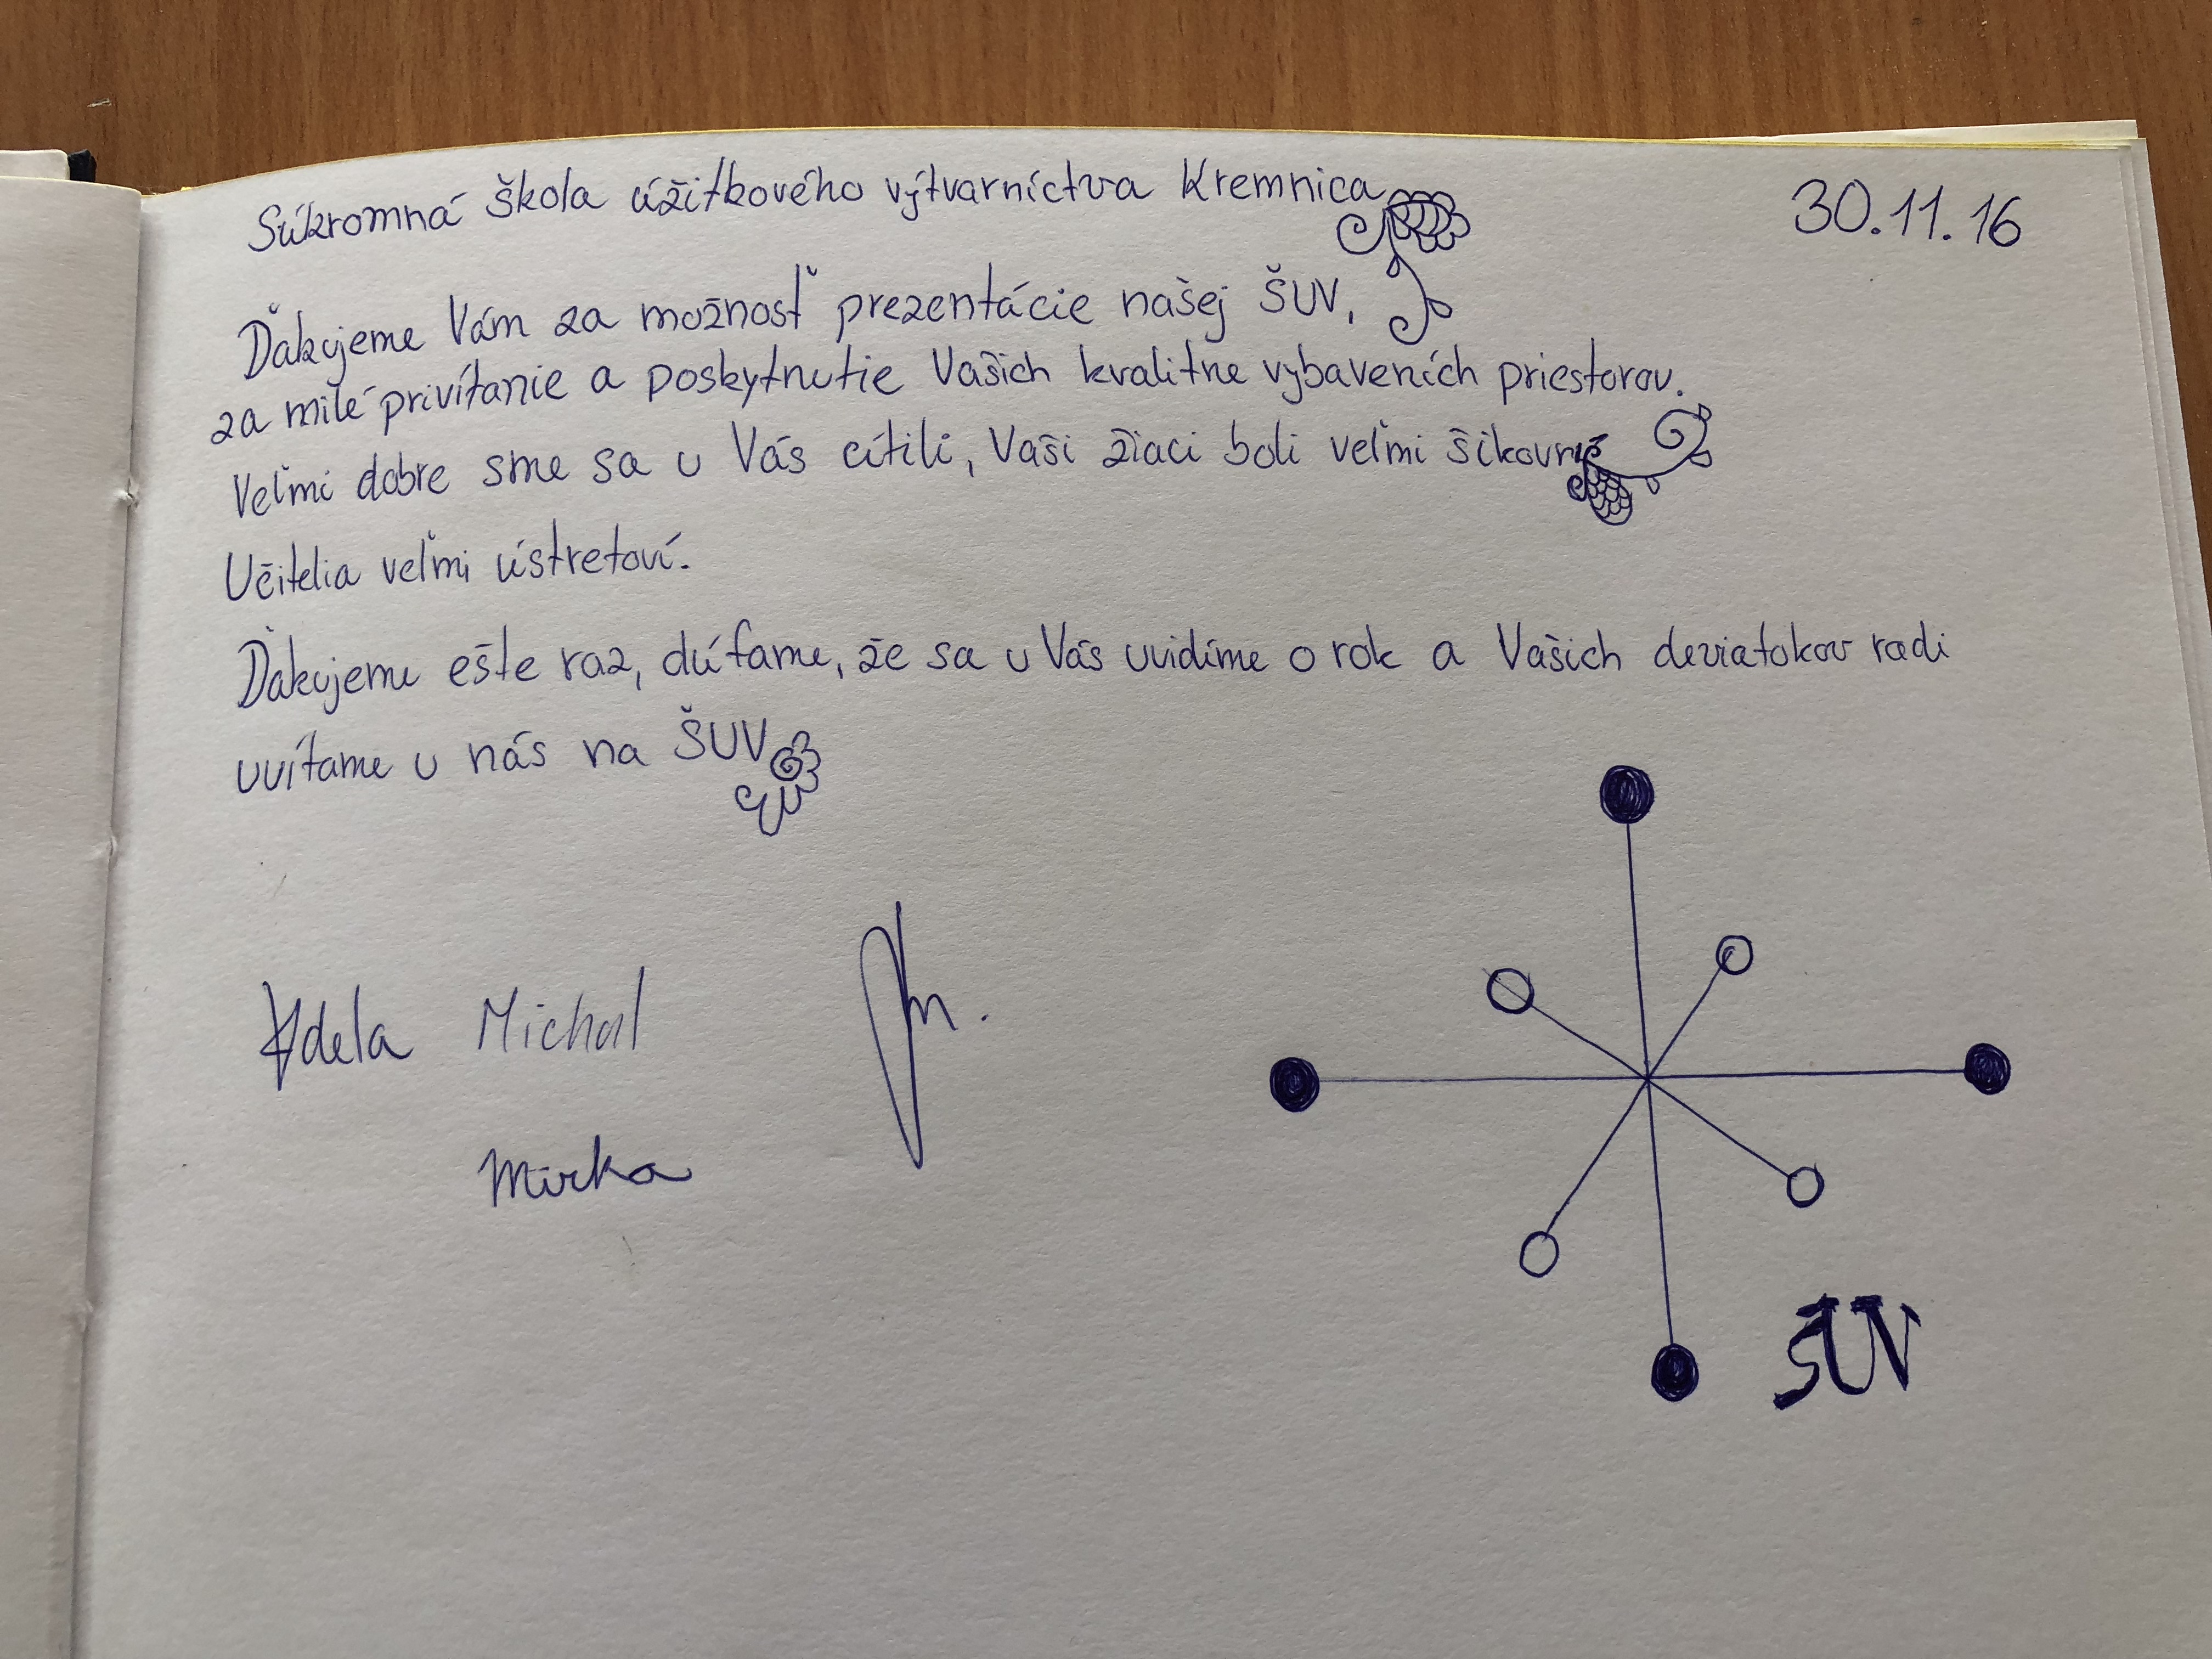 Súkromná škola úžitkového výtvarníctva Kremnica
30.11.16
Ďakujeme Vám za možnosť prezentácie našej ŠUV,
za milé privítanie a poskytnutie Vašich kvalitne vybaveních priestorov.
Veľmi dobre sme sa u Vás cítili, Vaši žiaci boli veľmi šikovní
Učitelia veľmi ústretoví.
Ďakujeme ešte raz, dúfame, že sa u Vás uvidíme o rok a Vašich deviatakov radi
uvítame u nás na ŠUV
Adela Michal
Mirka
ŠUV